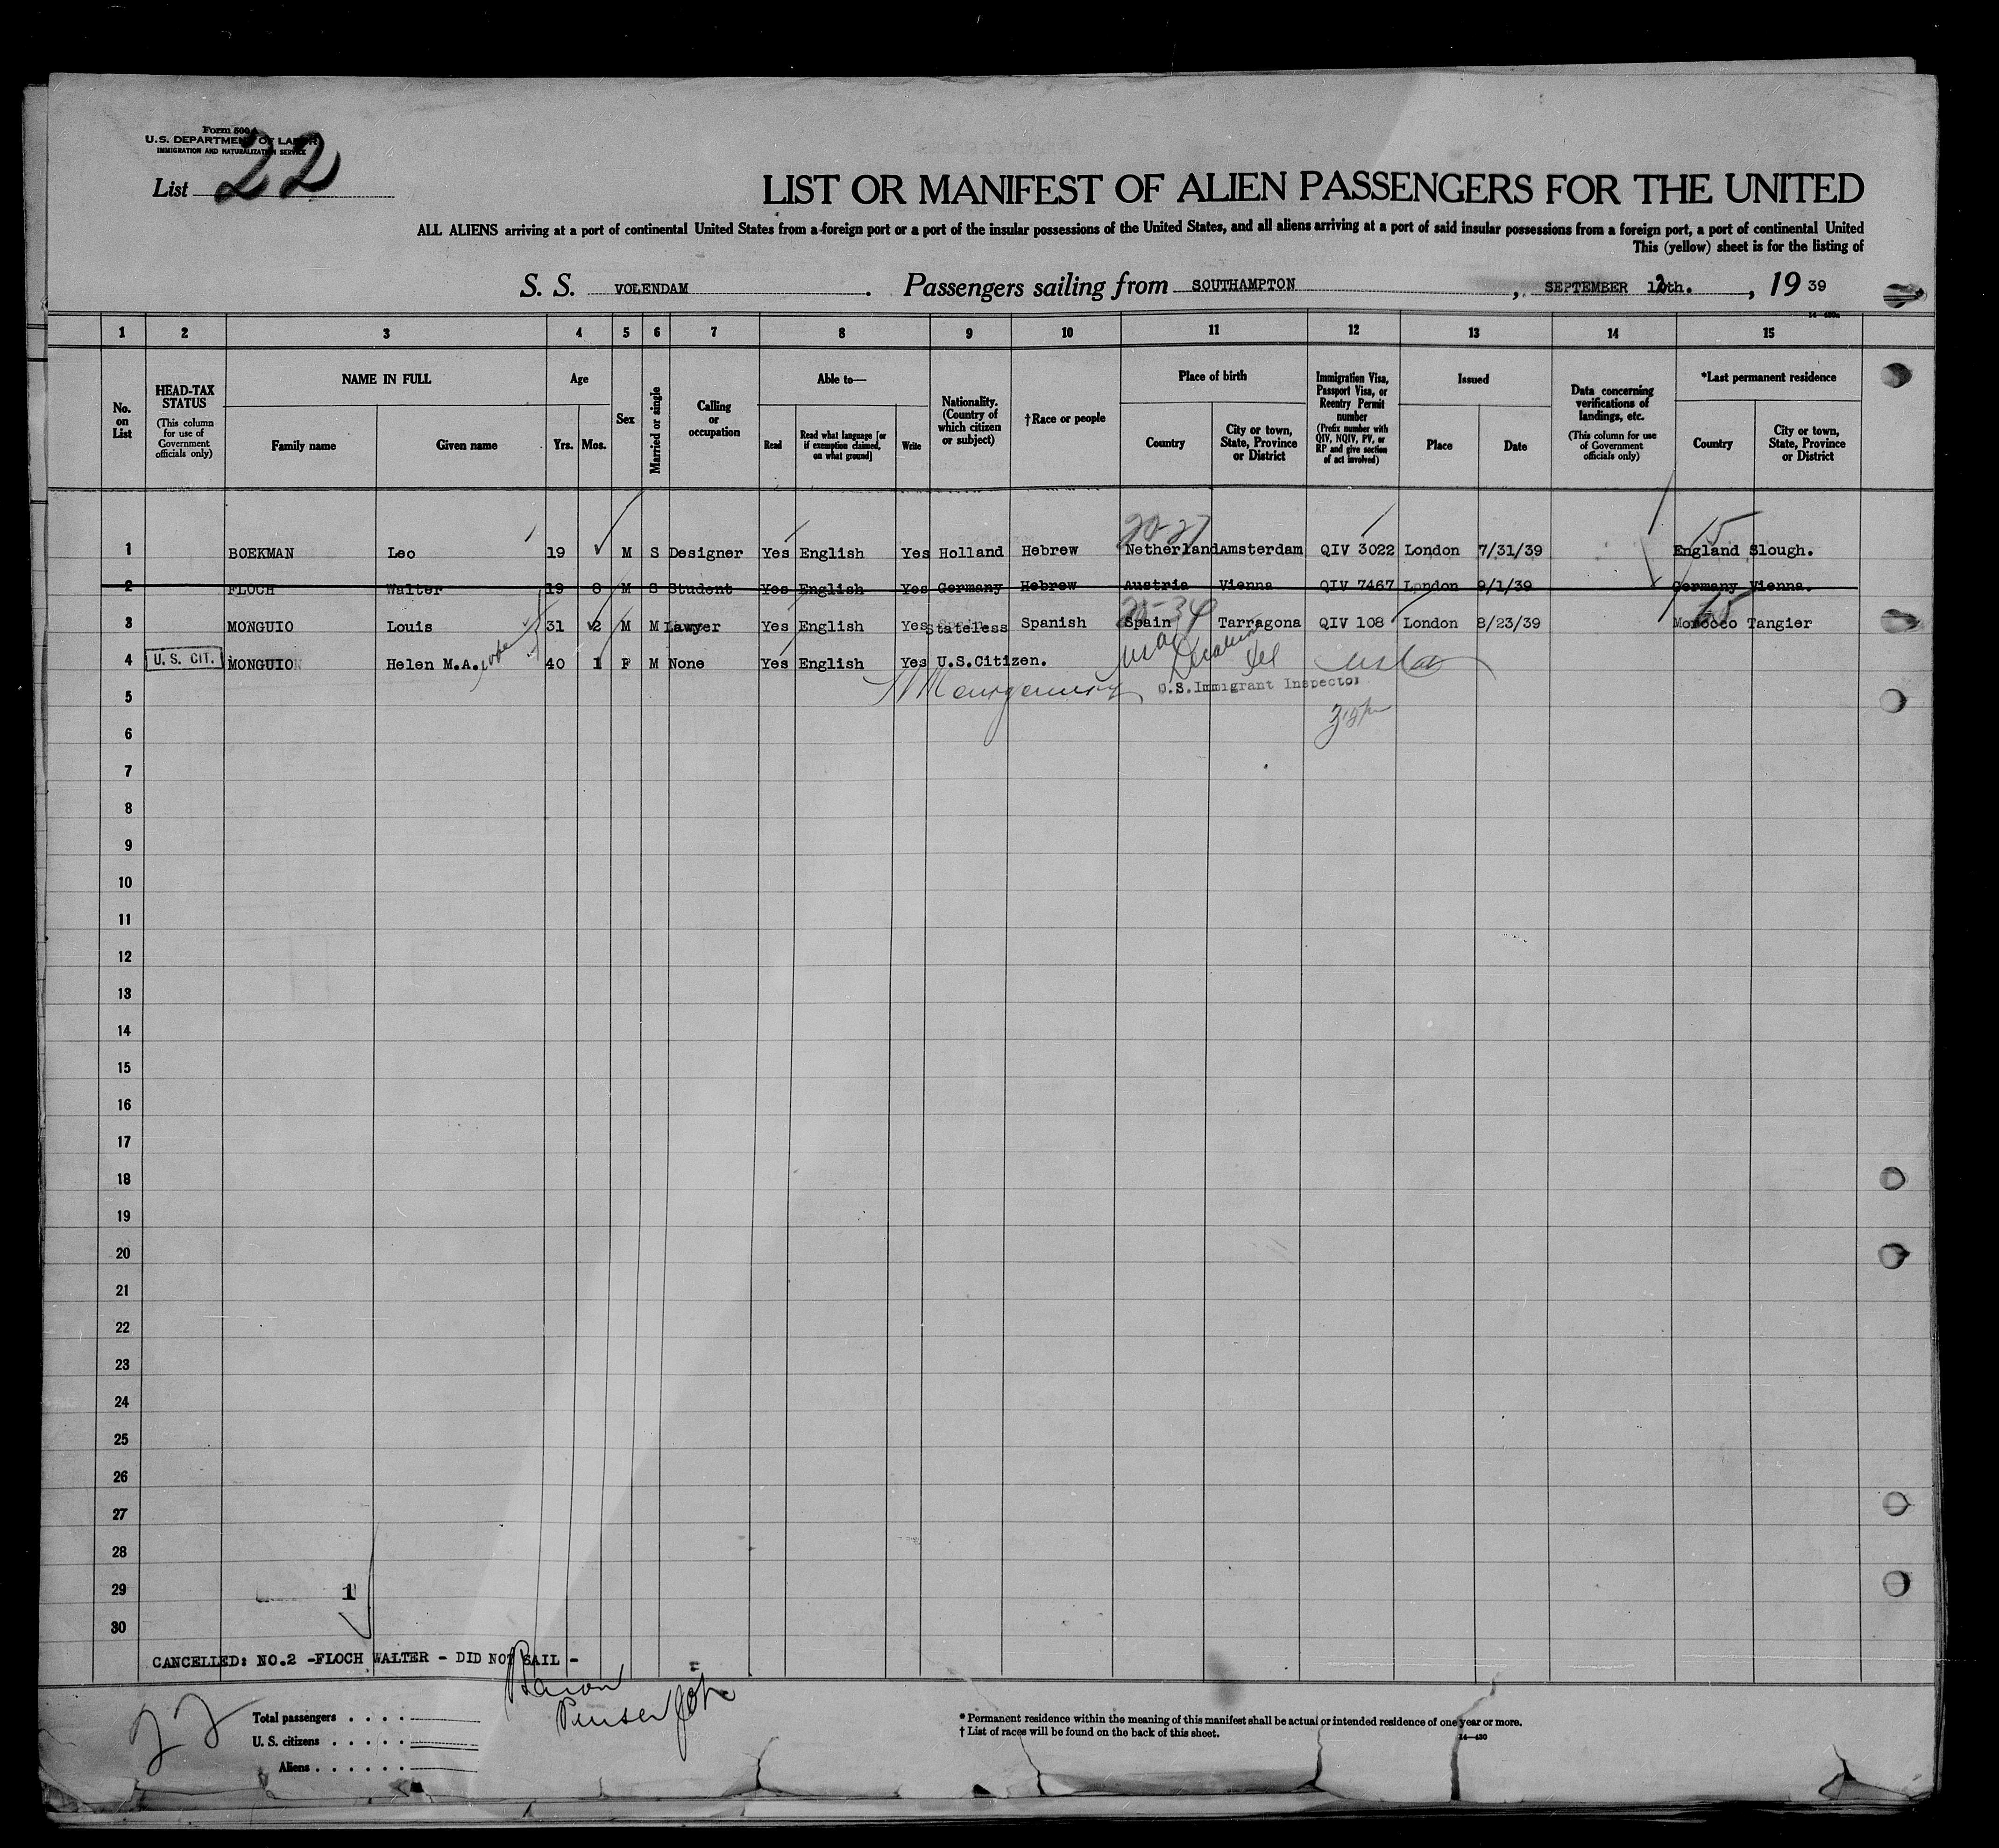 Form 500
U.S. DEPARTMENT OF LABOR
IMMIGRATION AND NATURALIZATION SERVICE
List 22
LIST OR MANIFEST OF ALIEN PASSENGERS FOR THE UNITED
ALL ALIENS arriving at a port of continental United States from a foreign port or a port of the insular possessions of the United States, and all aliens arriving at a port of said insular possessions from a foreign port, a port of continental United
This (yellow) sheet is for the listing of
S. S. VOLENDAM . Passengers sailing from SOUTHAMPTON , SEPTEMBER 12th. , 19 39
1 2 3 4 5 6 7 8 9 10 11 12 13 14 15
No. on List
HEAD-TAX STATUS (This column for use of Government officials only)
NAME IN FULL Family name Given name
Age Yrs. Mos.
Sex
Married or single
Calling or occupation
Able to— Read Read what language [or if exemption claimed, on what ground] Write
Nationality. (Country of which citizen or subject)
†Race or people
Place of birth Country City or town, State, Province or District
Immigration Visa, Passport Visa, or Reentry Permit number (Prefix number with QIV, NQIV, PV, or RP and give section of act involved)
Issued Place Date
Data concerning verifications of landings, etc. (This column for use of Government officials only)
*Last permanent residence Country City or town, State, Province or District
20-27 15
1 BOEKMAN Leo 19 M S Designer Yes English Yes Holland Hebrew Netherland Amsterdam QIV 3022 London 7/31/39 England Slough.
2 FLOCH Walter 19 8 M S Student Yes English Yes Germany Hebrew Austria Vienna QIV 7467 London 9/1/39 Germany Vienna.
3 MONGUIO Louis 31 2 M M Lawyer Yes English Yes Stateless Spanish Spain Tarragona QIV 108 London 8/23/39 Morocco Tangier
4 U. S. CIT. MONGUIO Helen M.A. 40 1 F M None Yes English Yes U.S.Citizen.
5 Montgomery U.S.Immigrant Inspector
6
7
8
9
10
11
12
13
14
15
16
17
18
19
20
21
22
23
24
25
26
27
28
29 1
30
CANCELLED: NO.2 -FLOCH WALTER - DID NOT SAIL -
Total passengers . . . .
U. S. citizens . . . . .
Aliens . . . . . .
* Permanent residence within the meaning of this manifest shall be actual or intended residence of one year or more.
† List of races will be found on the back of this sheet.
14—430